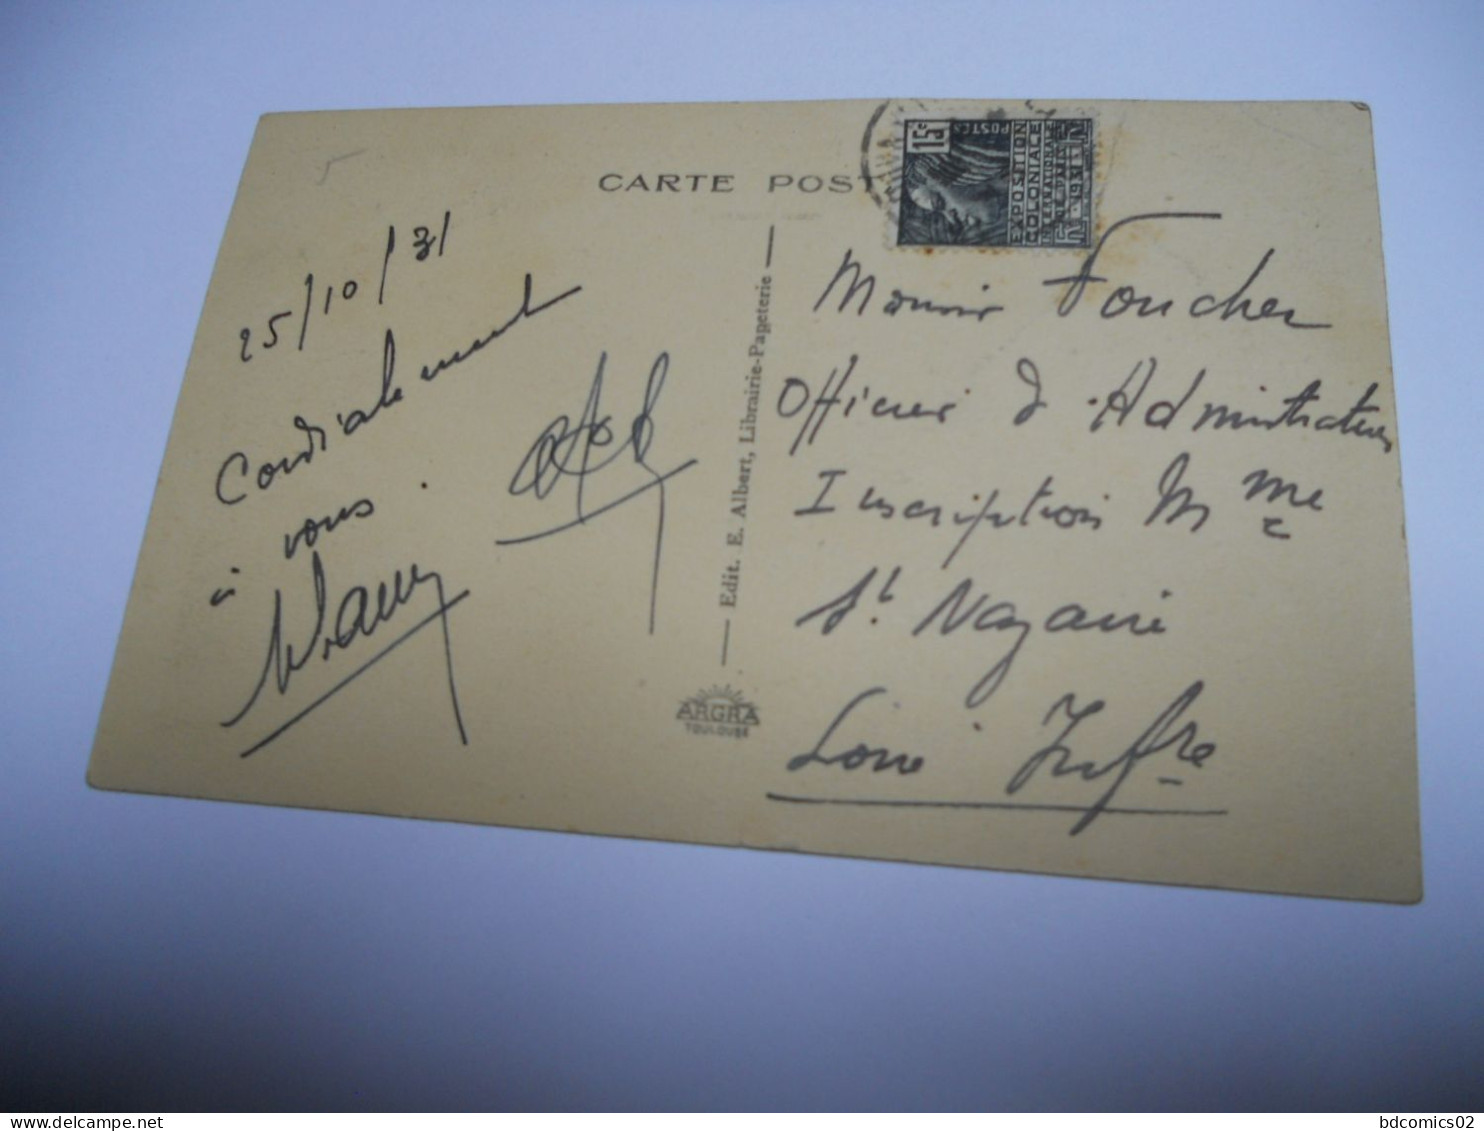 CARTE POST
15c
POSTES
EXPOSITION
COLONIALE
INTERNATIONALE
DE PARIS
1931
25/10/31
Cordialement
à vous.
Edit. E. Albert, Librairie-Papeterie
ARGRA
TOULOUSE
Monsieur Foucher
Officier d'Administration
Inscription Mme
St. Nazaire
Loire Infre
bdcomics02